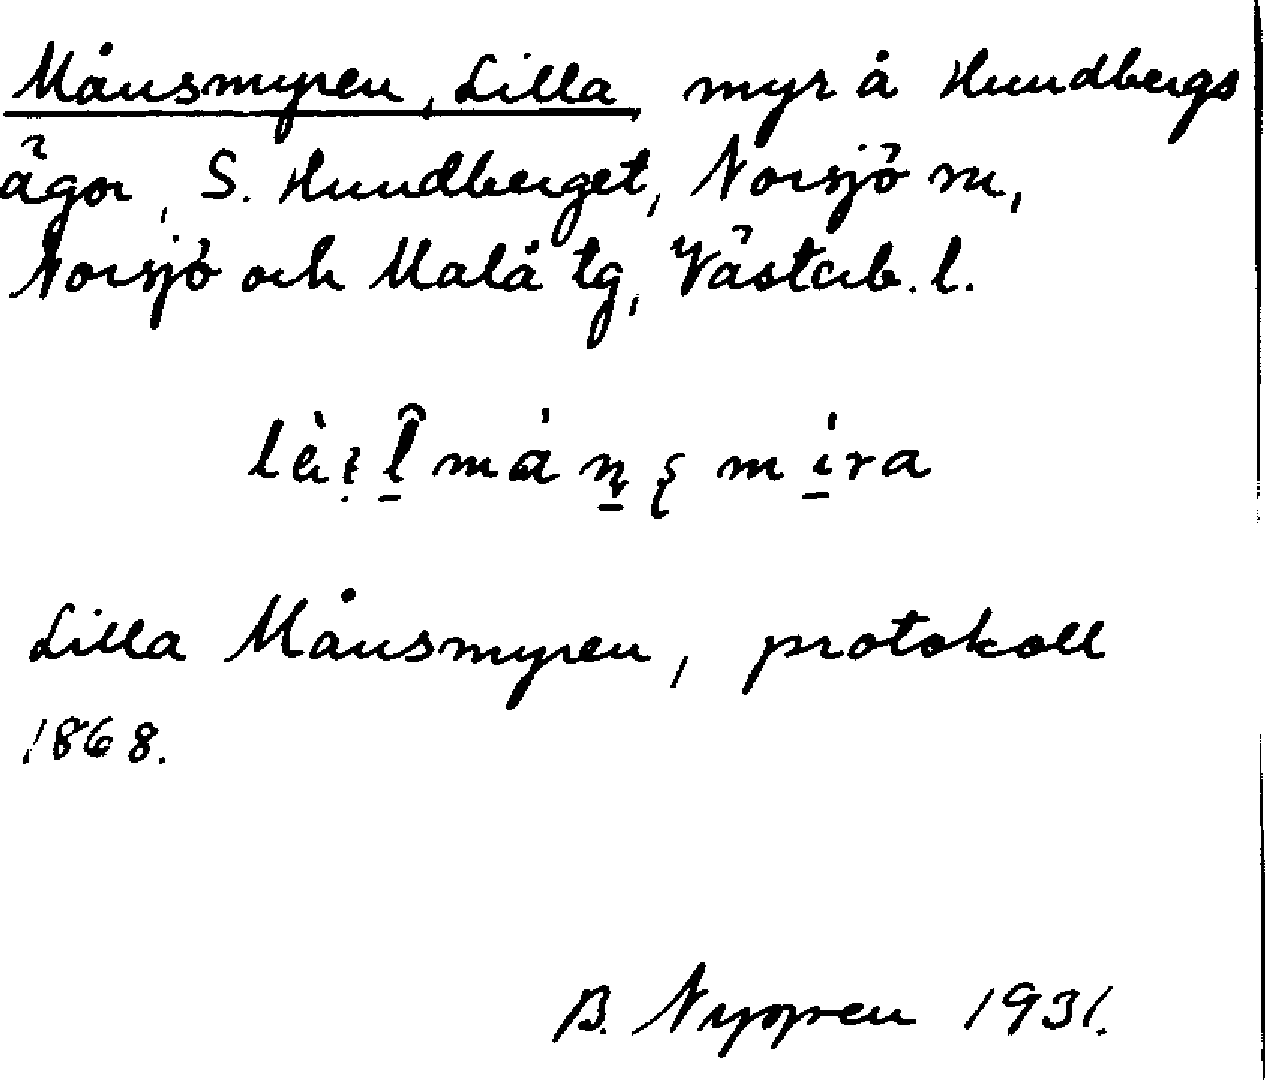 Månsmyren, Lilla myr å Hundbergs
ägor, S. Hundberget, Norsjö sn,
Norsjö och Malå tg, Västerb. l.
Lilla Månsmyren, protokoll
1868.
B. Nygren 1931.